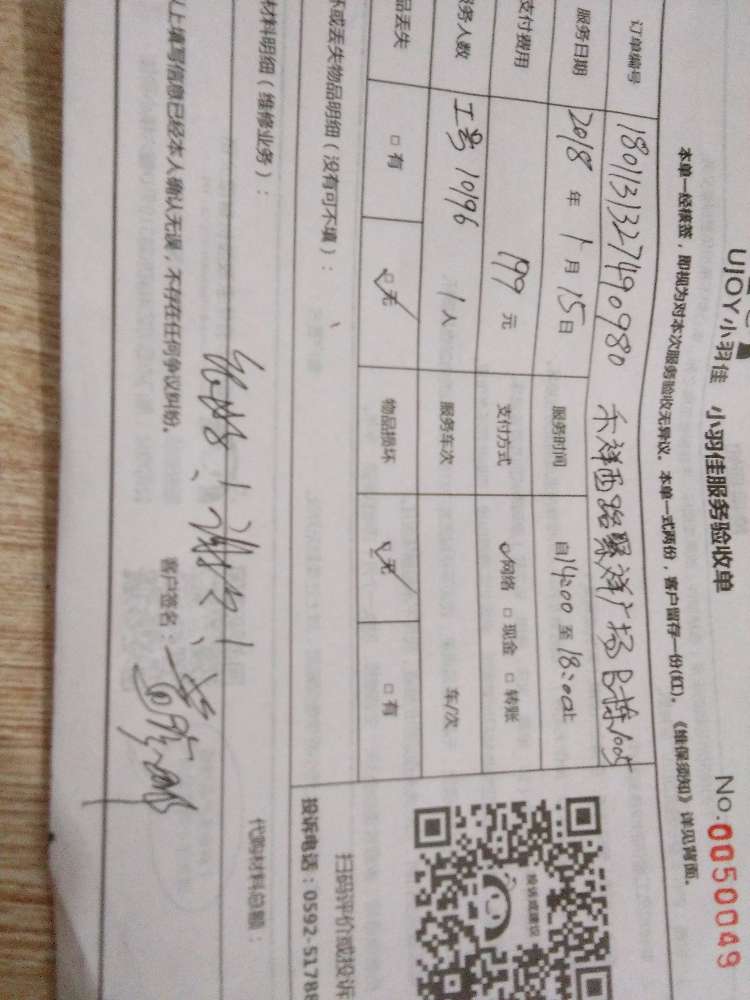 UJOY小羽佳 小羽佳服务验收单 No.0050049
本单一经核签，即视为对本次服务验收无异议。本单一式两份，客户留存一份(红)。《维保须知》详见背面。
订单编号 1801131327490980 禾祥西路聚祥广场B栋
服务日期 2018年1月15日 服务时间 自14:00至18:00止
支付费用 199元 支付方式 网络 □现金 □转账
务人数 工号10196 1人 服务车次 车/次
品丢失 □有 □无 物品损坏 □无 □有
坏或丢失物品明细（没有可不填）：
材料明细（维修业务）：
代购材料总额：
以上填写信息已经本人确认无误，不存在任何争议纠纷。
客户签名：
投诉或建议
扫码评价或投诉
投诉电话：0592-5178